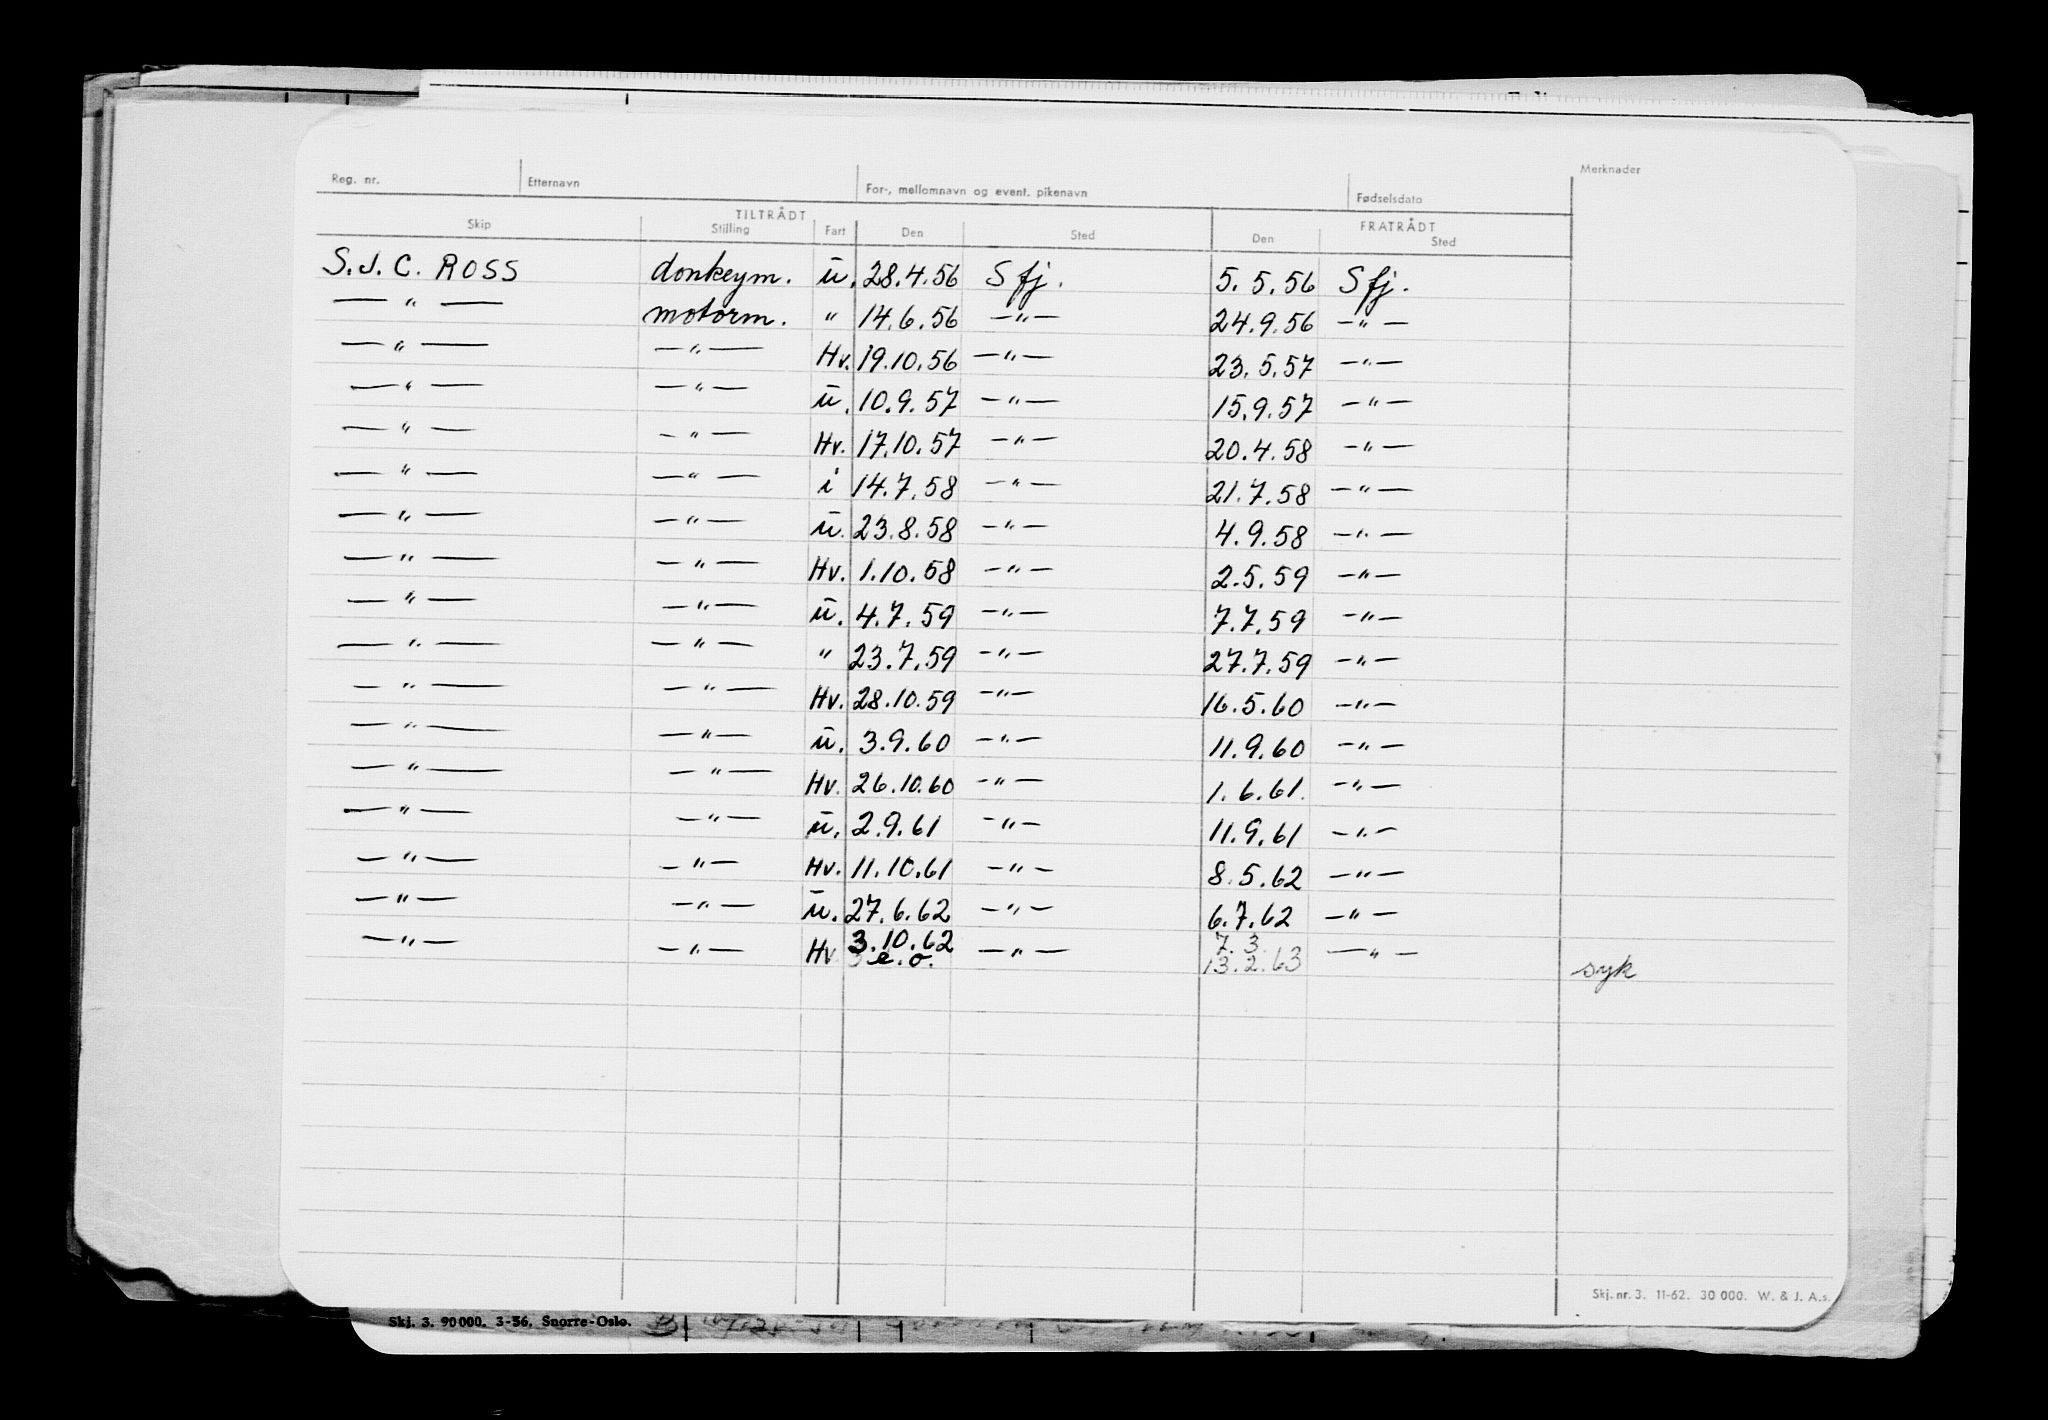 Reg. nr. Etternavn For-, mellomnavn og event. pikenavn Fødselsdato Merknader
TILTRÅDT FRATRÅDT
Skip Stilling Fart Den Sted Den Sted
S.J.C. ROSS donkeym. ū. 28.4.56 Sfj. 5.5.56 Sfj.
—"— motorm. " 14.6.56 —"— 24.9.56 —"—
—"— —"— Hv. 19.10.56 —"— 23.5.57 —"—
—"— —"— ū. 10.9.57 —"— 15.9.57 —"—
—"— —"— Hv. 17.10.57 —"— 20.4.58 —"—
—"— —"— i 14.7.58 —"— 21.7.58 —"—
—"— —"— ū. 23.8.58 —"— 4.9.58 —"—
—"— —"— Hv. 1.10.58 —"— 2.5.59 —"—
—"— —"— ū. 4.7.59 —"— 7.7.59 —"—
—"— —"— " 23.7.59 —"— 27.7.59 —"—
—"— —"— Hv. 28.10.59 —"— 16.5.60 —"—
—"— —"— ū. 3.9.60 —"— 11.9.60 —"—
—"— —"— Hv. 26.10.60 —"— 1.6.61. —"—
—"— —"— ū. 2.9.61 —"— 11.9.61 —"—
—"— —"— Hv. 11.10.61 —"— 8.5.62 —"—
—"— —"— ū. 27.6.62 —"— 6.7.62 —"—
—"— —"— Hv 3.10.62 —"— 7.3. —"—
e.o. 13.2.63 syk
Skj. nr. 3. 11-62. 30 000. W. & J. A.s.
Skj. 3. 90000. 3-56. Snorre-Oslo.